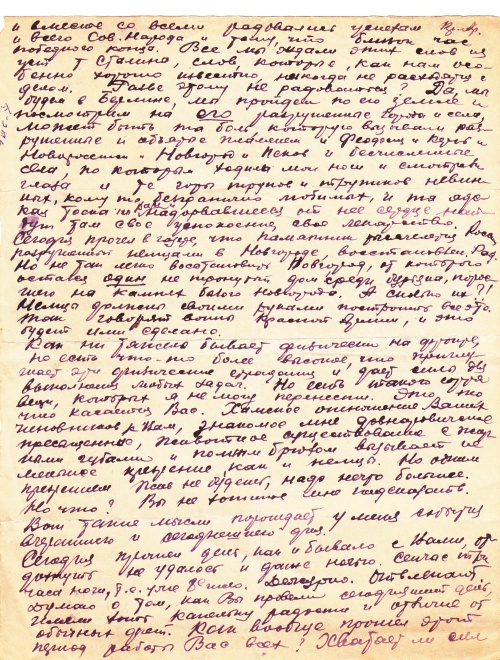 и вместе со всеми радовались успехам Кр. Ар.
и всего Сов. Народа и тому, что близок час
победного конца. Все мы ждали этих слов из
уст т Сталина, слов, которые, как нам осо-
бенно хорошо известно, никогда не расходятся с
делом. Разве этому не радоваться? Да, мы
будем в Берлине, мы пройдем по его земле и
посмотрим на его разрушенные города и села,
может быть та боль которую вызывали раз-
рушенные и объятые пламенем и Феодосия и Керчь и
Новороссийск и Новгород и Псков и бесчисленные
села, по которым ходили мои ноги и смотрели
глаза и те горы трупов и трупиков невин-
ных, кому то безгранично любимых, и та
как тоска и надорвавшееся от нее сердце
там свое успокоение, свое лекарство.
Сегодня прочел в газете, что памятник тысячелетия России
разрушенный немцами в Новгороде, восстановлен. Рад.
Но не так легко восстановить Новгород, от которого
остался один не тронутый дом среди
на камнях былого Новгорода. А сколько их?!
Немцы должны своими руками построить все это.
Так говорят воины Красной Армии, и это
будет ими сделано.
Как ни тяжело бывает физически на фронте,
но есть что-то более высокое, что
шает эти физические страдания и дает силы для
выполнения любых задач. Но есть такого сорта
вещи, которых я не могу перенести. Это то
что касается Вас. Хамское отношение Ваших
чиновников к Вам, знакомое мне
пресыщенные, животное существование с
ными губами и полным брюхом вызывает не
меньшее презрение как и немцы. Но одним
презрением Жив не будешь, надо нечто большее.
Но что? Вы не хотите мне подсказать.
Вот такие мысли порождает у меня события
вчерашнего и сегодняшнего дня.
Сегодня прошел день, как и бывало с Вами, от-
дохнуть не удалось и даже ночью. Сейчас три
часа ночи, т.е. уже 8 число. Дежурю.
Думаю о том, как Вы провели сегодняшний день,
имели хоть капельку радости и отличие от
обычных дней. Как вообще прошел этот
период работы Вас всех? Хватает ли сил